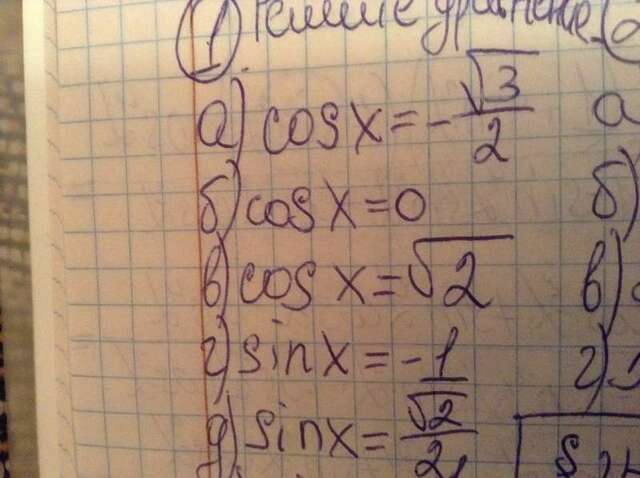 1) Решите уравнение
а) cos x = -√3/2
б) cos x = 0
в) cos x = √2
г) sin x = -1
д) sin x = √2/2
а
б)
в)
г)